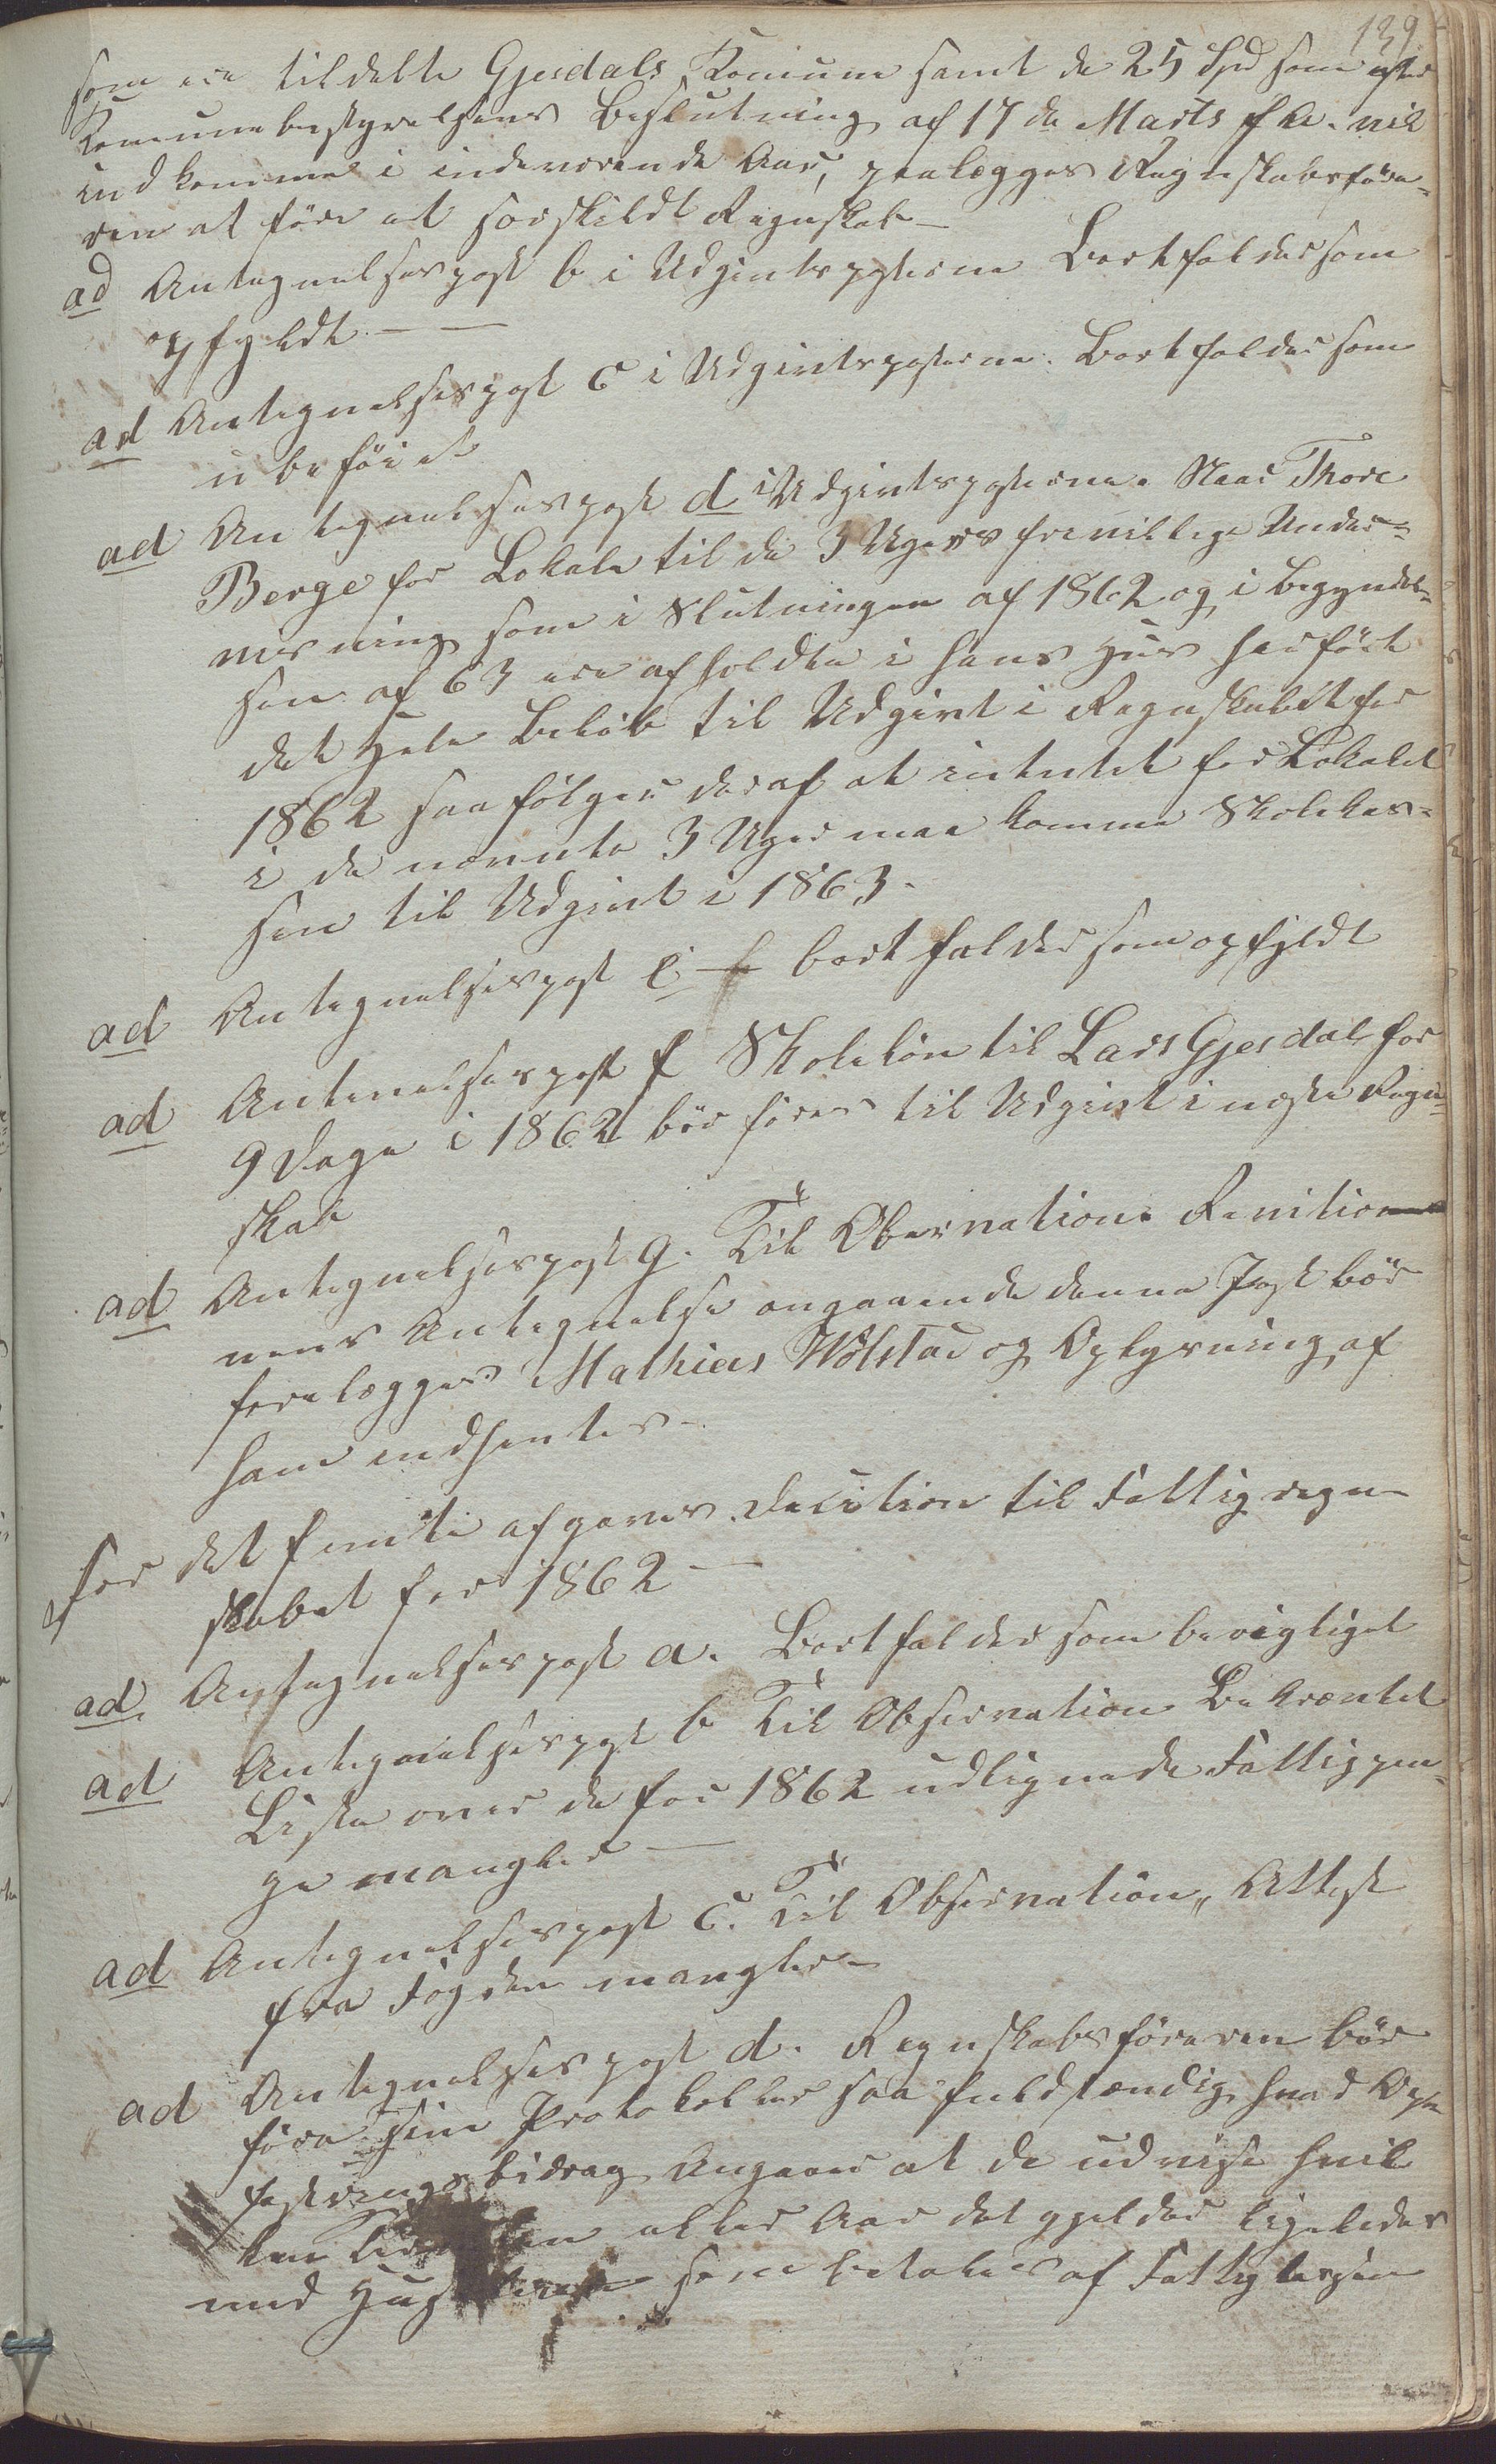 139
som ere tildelte Gjesdals Komune samt de 25 Spd som efter
Komunebestyrelsens Beslutning af 17de Marts f. A. vil
indkomme i indeværende Aar, paalægges Regnskabsföre-
ren at före et særskildt Regnskab —
ad Antegnelsespost b i Udgivtsposterne Bortfalder som
opfyldt. —
ad Antegnelsespost c i Udgivtsposterne. Bortfalder som
ubeföiet
ad Antegnelsespost d i Udgivtsposterne. Naar Thore
Berge for Lokale til de 3 Ugers frivillige Under-
visning som i Slutningen af 1862 og i Begyndel-
sen af 63 ere afholdte i hans Huus har fört
det hele Belöb til Udgivt i Regnskabet for
1862 saa fölger deraf at intetet for Lokalet
i de nævnte 3 Uger maa komme Skolekas-
sen til Udgivt i 1863.
ad Antegnelsespost e bortfalder som opfyldt
ad Antenelsespost f Skolelön til Lars Gjesdal for
9 Dage i 1862 bör föres til Udgivt i næste Regn-
skab
ad Antegnelsespost g. Til Obervation. Revitio
nens Antegnelse angaaende denne Post bör
forelægges Mathias Wölstad og Oplysning af
ham indhentes —
for det femte afgaves Decition til Fattigregn-
skabet for 1862 —
ad Antegnelsespost a. Bortfalder som berigtiget
ad Antegnelsespost b Til Observation Bekræntet
Liste over de for 1862 udlignede Fattigpen-
ge mangler —
ad Antegnelsespost c. Til Observation, Attest
fra Fogden mangler —
ad Antegnelsespost d. Regnskabsföreren bör
före sine Protokoller saa fuldstændig hvad Op-
fostringsbidrag Angaar at de udvise hvil
ken eller Aar det gjelder ligeledes
med som betales af Fattigkassen